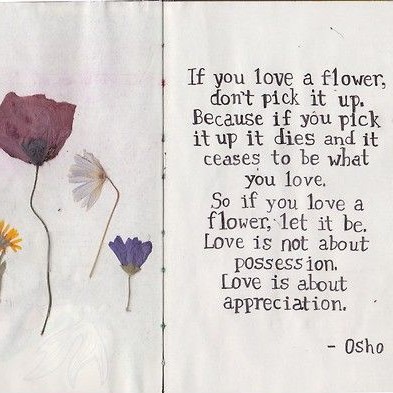 If you love a flower,
don't pick it up.
Because if you pick
it up it dies and it
ceases to be what
you love.
So if you love a
flower, let it be.
Love is not about
possession.
Love is about
appreciation.
- Osho